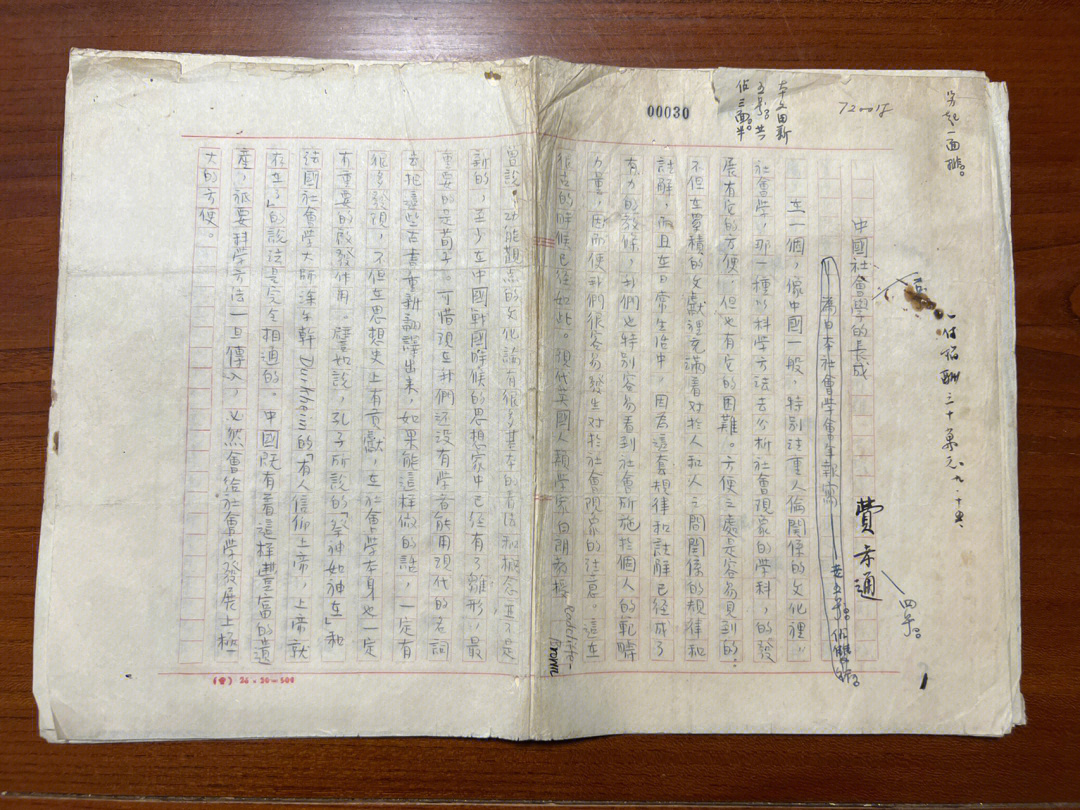 另起一面排。
一付稿酬三十萬元 九·十五
72001f
本文由新
五号。共
佔三面半。
00030
中國社會學的長成
費孝通
四号。
——為日本社會學會年報寫——
老五号。
在一個,像中國一般,特別注重人倫關係的文化裡,
社會學,那一種以科學方法去分析社會現象的學科,的發
展有它的方便,但也有它的困難。方便之處是容易見到的:
不但在累積的文獻裡充滿着對於人和人之間關係的規律和
註解,而且在日常生活中,因為這套規律和註解已經成了
有力的教條,我們也特別容易看到社會所施於個人的範疇
力量,因而使我們很容易發生對於社會現象的注意。這在
很古的時候已經如此。現代英國人類學家白朗教授
Radcliffe-
Brown
曾說:功能觀點的文化論有很多基本的看法和概念並不是
新的,至少在中國戰國時候的思想家中已經有了雛形,最
重要的是荀子。可惜現在我們還沒有學者能用現代的名詞
去把這些古書重新翻譯出來,如果能這樣做的話,一定有
很多發現,不但在思想史上有貢獻,在社會學本身也一定
有重要的啟發作用。譬如說,孔子所說的「祭神如神在」和
法國社會學大師涂爾幹 Durkheim 的「有人信仰上帝,上帝就
存在了」的說法是完全相通的。中國既有着這樣豐富的遺
產,祇要科學方法一旦傳入,必然會給社會學發展上極
大的方便。
1
(會) 26·20=500